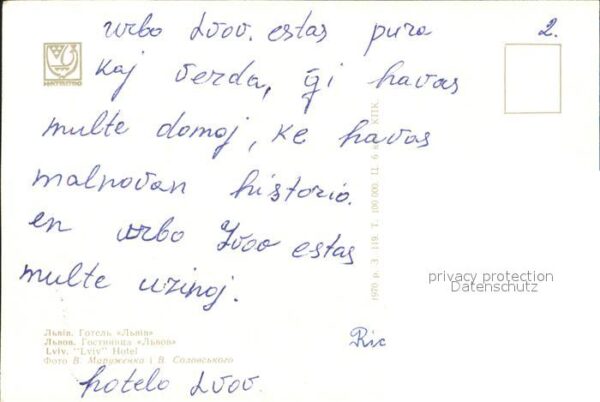 urbo Lvov. estas pura
2.
kaj verda, ĝi havas
multe domoj, ke havas
malnovan historio.
en urbo Lvov estas
multe uzinoj.
privacy protection
Datenschutz
1970 р. З. 119. Т. 100 000. Ц. 6 к. КПК.
Львів. Готель «Львів»
Львов. Гостиница «Львов»
Lviv. "Lviv" Hotel
Фото В. Мараженка і В. Соловського
Ric
hotelo Lvov